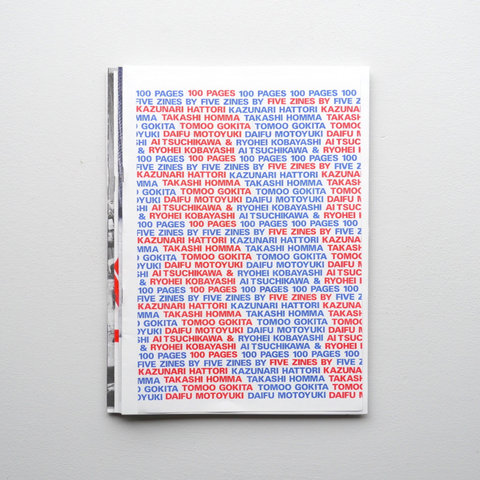 100 PAGES 100 PAGES 100 PAGES 100 PAGES 100
FIVE ZINES BY FIVE ZINES BY FIVE ZINES BY FIVE Z
KAZUNARI HATTORI KAZUNARI HATTORI KAZUNA
MMA TAKASHI HOMMA TAKASHI HOMMA TAKASH
O GOKITA TOMOO GOKITA TOMOO GOKITA TOMOO
OYUKI DAIFU MOTOYUKI DAIFU MOTOYUKI DAIFU M
SHI AI TSUCHIKAWA & RYOHEI KOBAYASHI AI TSUCH
& RYOHEI KOBAYASHI AI TSUCHIKAWA & RYOHEI K
100 PAGES 100 PAGES 100 PAGES 100 PAGES 100
FIVE ZINES BY FIVE ZINES BY FIVE ZINES BY FIVE Z
KAZUNARI HATTORI KAZUNARI HATTORI KAZUNA
MMA TAKASHI HOMMA TAKASHI HOMMA TAKASH
O GOKITA TOMOO GOKITA TOMOO GOKITA TOMOO
OYUKI DAIFU MOTOYUKI DAIFU MOTOYUKI DAIFU M
SHI AI TSUCHIKAWA & RYOHEI KOBAYASHI AI TSUCH
& RYOHEI KOBAYASHI AI TSUCHIKAWA & RYOHEI K
100 PAGES 100 PAGES 100 PAGES 100 PAGES 100
FIVE ZINES BY FIVE ZINES BY FIVE ZINES BY FIVE Z
KAZUNARI HATTORI KAZUNARI HATTORI KAZUNA
MMA TAKASHI HOMMA TAKASHI HOMMA TAKASH
O GOKITA TOMOO GOKITA TOMOO GOKITA TOMOO
OYUKI DAIFU MOTOYUKI DAIFU MOTOYUKI DAIFU M
SHI AI TSUCHIKAWA & RYOHEI KOBAYASHI AI TSUCH
& RYOHEI KOBAYASHI AI TSUCHIKAWA & RYOHEI K
100 PAGES 100 PAGES 100 PAGES 100 PAGES 100
FIVE ZINES BY FIVE ZINES BY FIVE ZINES BY FIVE Z
KAZUNARI HATTORI KAZUNARI HATTORI KAZUNA
MMA TAKASHI HOMMA TAKASHI HOMMA TAKASH
O GOKITA TOMOO GOKITA TOMOO GOKITA TOMOO
OYUKI DAIFU MOTOYUKI DAIFU MOTOYUKI DAIFU M
SHI AI TSUCHIKAWA & RYOHEI KOBAYASHI AI TSUCH
& RYOHEI KOBAYASHI AI TSUCHIKAWA & RYOHEI K
100 PAGES 100 PAGES 100 PAGES 100 PAGES 100
FIVE ZINES BY FIVE ZINES BY FIVE ZINES BY FIVE Z
KAZUNARI HATTORI KAZUNARI HATTORI KAZUNA
MMA TAKASHI HOMMA TAKASHI HOMMA TAKASH
O GOKITA TOMOO GOKITA TOMOO GOKITA TOMOO
OYUKI DAIFU MOTOYUKI DAIFU MOTOYUKI DAIFU M